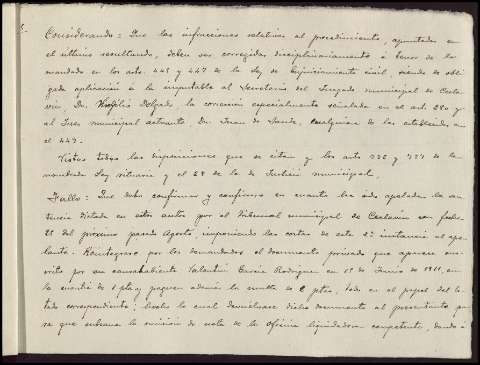 Considerando: Que las infracciones relativas al procedimiento, apuntadas en
el último resultando, deben ser corregidas disciplinariamente á tenor de lo
mandado en los arts. 448 y 447 de la Ley de Enjuiciamiento civil, siendo de obli-
gada aplicación á la imputable al Secretario del Juzgado municipal de Cecla-
vín, Dn. Virgilio Delgado, la corrección especialmente señalada en el art. 280 y
al Juez municipal actuante, Dn. Juan de Sande, cualquiera de las establecidas en
el 449.
Vistas todas las disposiciones que se citan y los arts 732 y 737 de la
mandada Ley rituaria y el 28 de la de Justicia municipal.
Fallo: Que debo confirmar y confirmo en cuanto ha sido apelada la sen-
tencia dictada en estos autos por el Tribunal municipal de Ceclavín con fecha
28 del próximo pasado Agosto, imponiendo las costas de esta 2ª instancia al ape-
lante. Reintegrese por los demandados el documento privado que aparece sus-
crito por su causahabiente Valentín Garcia Rodriguez en 1º de Junio de 1911, en
la cuantía de 1 pta y paguen además la multa de 2 ptas, todo en el papel del Es-
tado correspondiente; hecho lo cual devuelvase dicho documento al presentante pa-
ra que subsane la omisión de nota de la oficina liquidadora competente, dando á